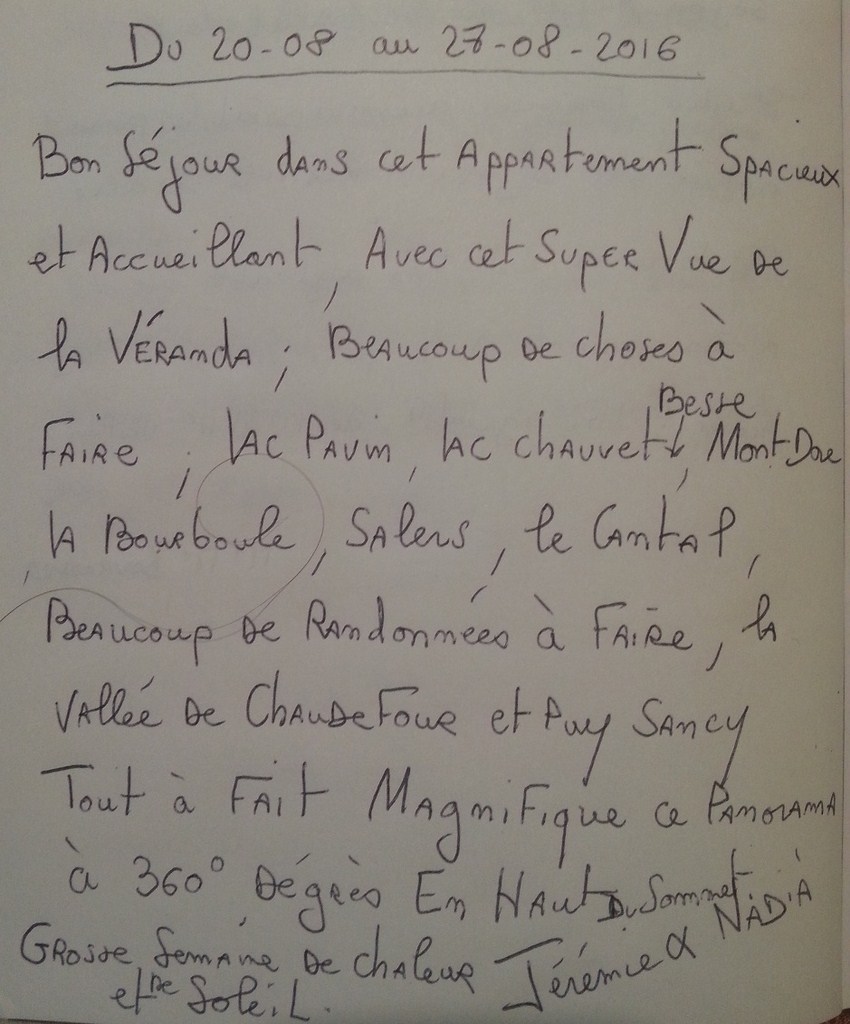 Du 20-08 au 27-08-2016
Bon Séjour dans cet Appartement Spacieux
et Accueillant, Avec cet Super Vue de
la Véranda ; Beaucoup de choses à
Faire ; lac Pavin, lac chauvet, Besse, Mont Dore
la Bourboule, Salers, le Cantal,
Beaucoup de Randonnées à Faire, la
Vallée de Chaudefour et Puy Sancy
Tout à Fait Magnifique ce Panorama
à 360° Dégrès En Haut Du Sommet.
Grosse Semaine de Chaleur
et de Soleil.
Jérémie & Nadia